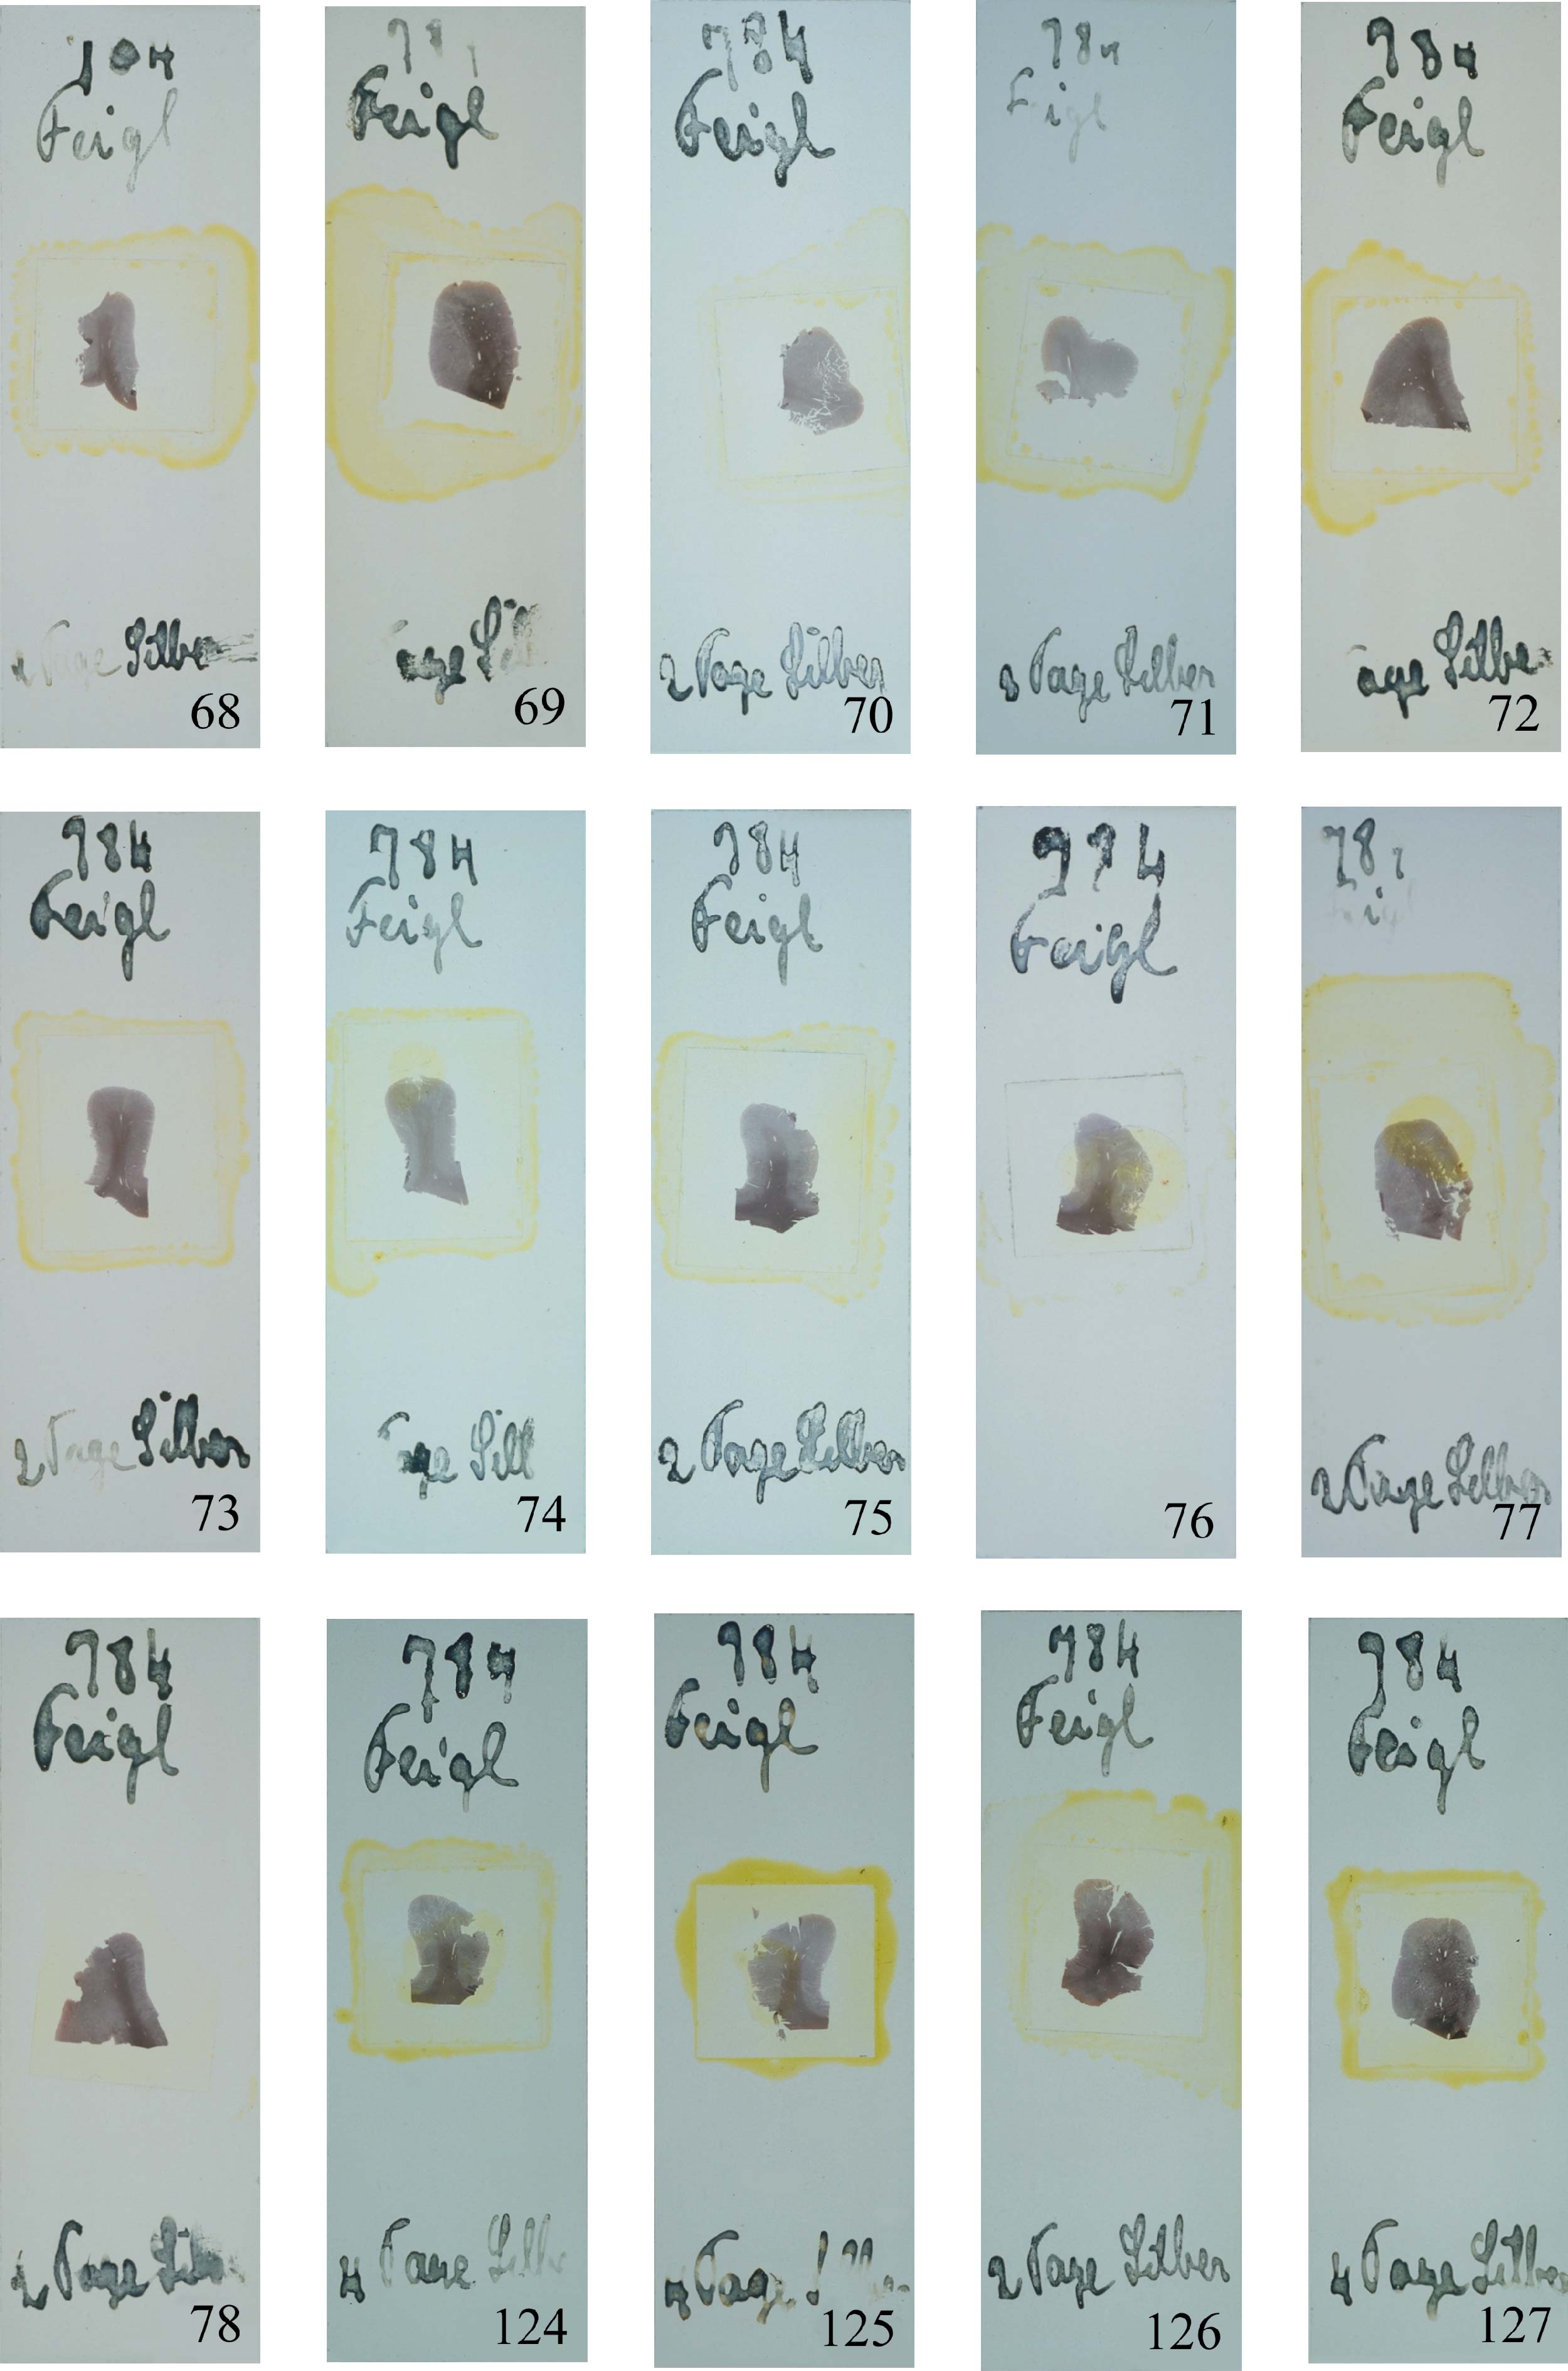 Feigl
Tage Silber
68
Feigl
69
784
Feigl
2 Tage Silber
70
784
3 Tage Silber
71
784
Feigl
age Silbe
72
784
Feigl
2 Tage Silber
73
784
Feigl
age Silb
74
784
Feigl
2 Tage Silber
75
Feigl
76
78
2 Tage Silber
77
784
Feigl
2 Tage Silbe
78
784
Feigl
4 Tage Silbe
124
784
Feigl
4 Tage
125
784
Feigl
2 Tage Silber
126
784
Feigl
4 Tage Silber
127